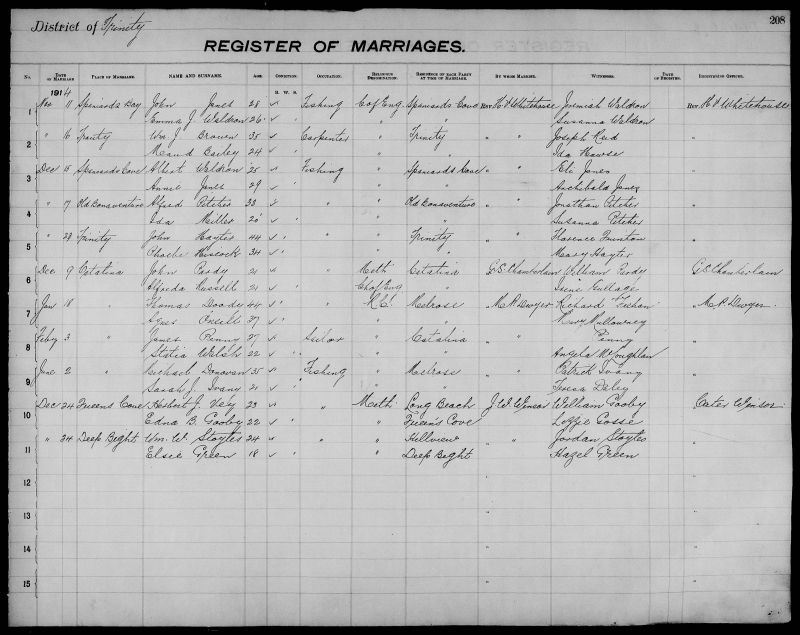 208
District of Trinity
REGISTER OF MARRIAGES.
No. DATE OF MARRIAGE PLACE OF MARRIAGE. NAME AND SURNAME. AGE CONDITION. OCCUPATION. RELIGIOUS DENOMINATION. RESIDENCE OF EACH PARTY AT TIME OF MARRIAGE. BY WHOM MARRIED. WITNESSES. DATE OF REGISTRY. REGISTERING OFFICER.
1914 B. W. S.
1 Nov 11 Spaniards Bay John Janes 28 ✓ Fishing C of Eng. Spaniards Cove Rev. H V Whitehouse Jeremiah Waldron Rev. H V Whitehouse
Emma J Waldron 26 ✓ " " Susanna Waldron
2 " 16 Trinity Wm J Brown 35 ✓ Carpenter " Trinity " " Joseph Reid "
Maud Bailey 24 ✓ " " Ida Hawse
3 Dec 15 Spaniards Cove Albert Waldron 25 ✓ Fishing " Spaniards Cove " " Eli Jones "
Annie Janes 29 ✓ " " Archibald Janes
4 " 17 Old Bonaventure Alfred Pitcher 33 " " Old Bonaventure " " Jonathan Pitcher "
Ida Miller 20 ✓ " " Susanna Pitcher
5 " 23 Trinity John Hayter 44 ✓ " " Trinity " " Florence "
Phoebe Hiscock 34 ✓ " " Mary Hayter
6 Dec 9 Catalina John 21 ✓ " Meth Catalina G.S. Chamberlain William G.S. Chamberlain
Alfreda Russell 21 ✓ Ch of Eng " Irene Gullage
7 Jany 18 " Thomas Doody 44 ✓ " R.C. Melrose M. P. Dwyer Richard M. P. Dwyer.
Agnes 37 ✓ " " Mary Mullowney
8 Feby 3 " James Penny 27 ✓ " Catalina " " Penny "
Statia Walsh 22 ✓ " " Angela
9 June 2 " Michael Donovan 25 ✓ Fishing " Melrose " " Patrick "
Sarah J. Ivany 21 ✓ " " Teresa Daley
10 Dec 24 Queens Cove Herbert J. Vey 23 ✓ " Meth. Long Beach J W Winsor William Gooby Winsor.
Edna B. Gooby 22 ✓ " Queens Cove Lizzie Gosse
11 " 24 Deep Bight Wm. W. Stoyles 24 ✓ " " Hillview " " Jordan Stoyles "
Elsie Green 18 ✓ " Deep Bight Hazel Green
12 " "
13 " "
14 " "
15 " "